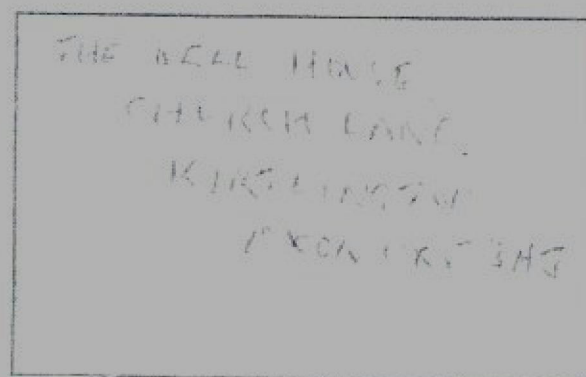 THE WELL HOUSE
CHURCH LANE
KIRTLINGTON
OXON OX5 3HJ